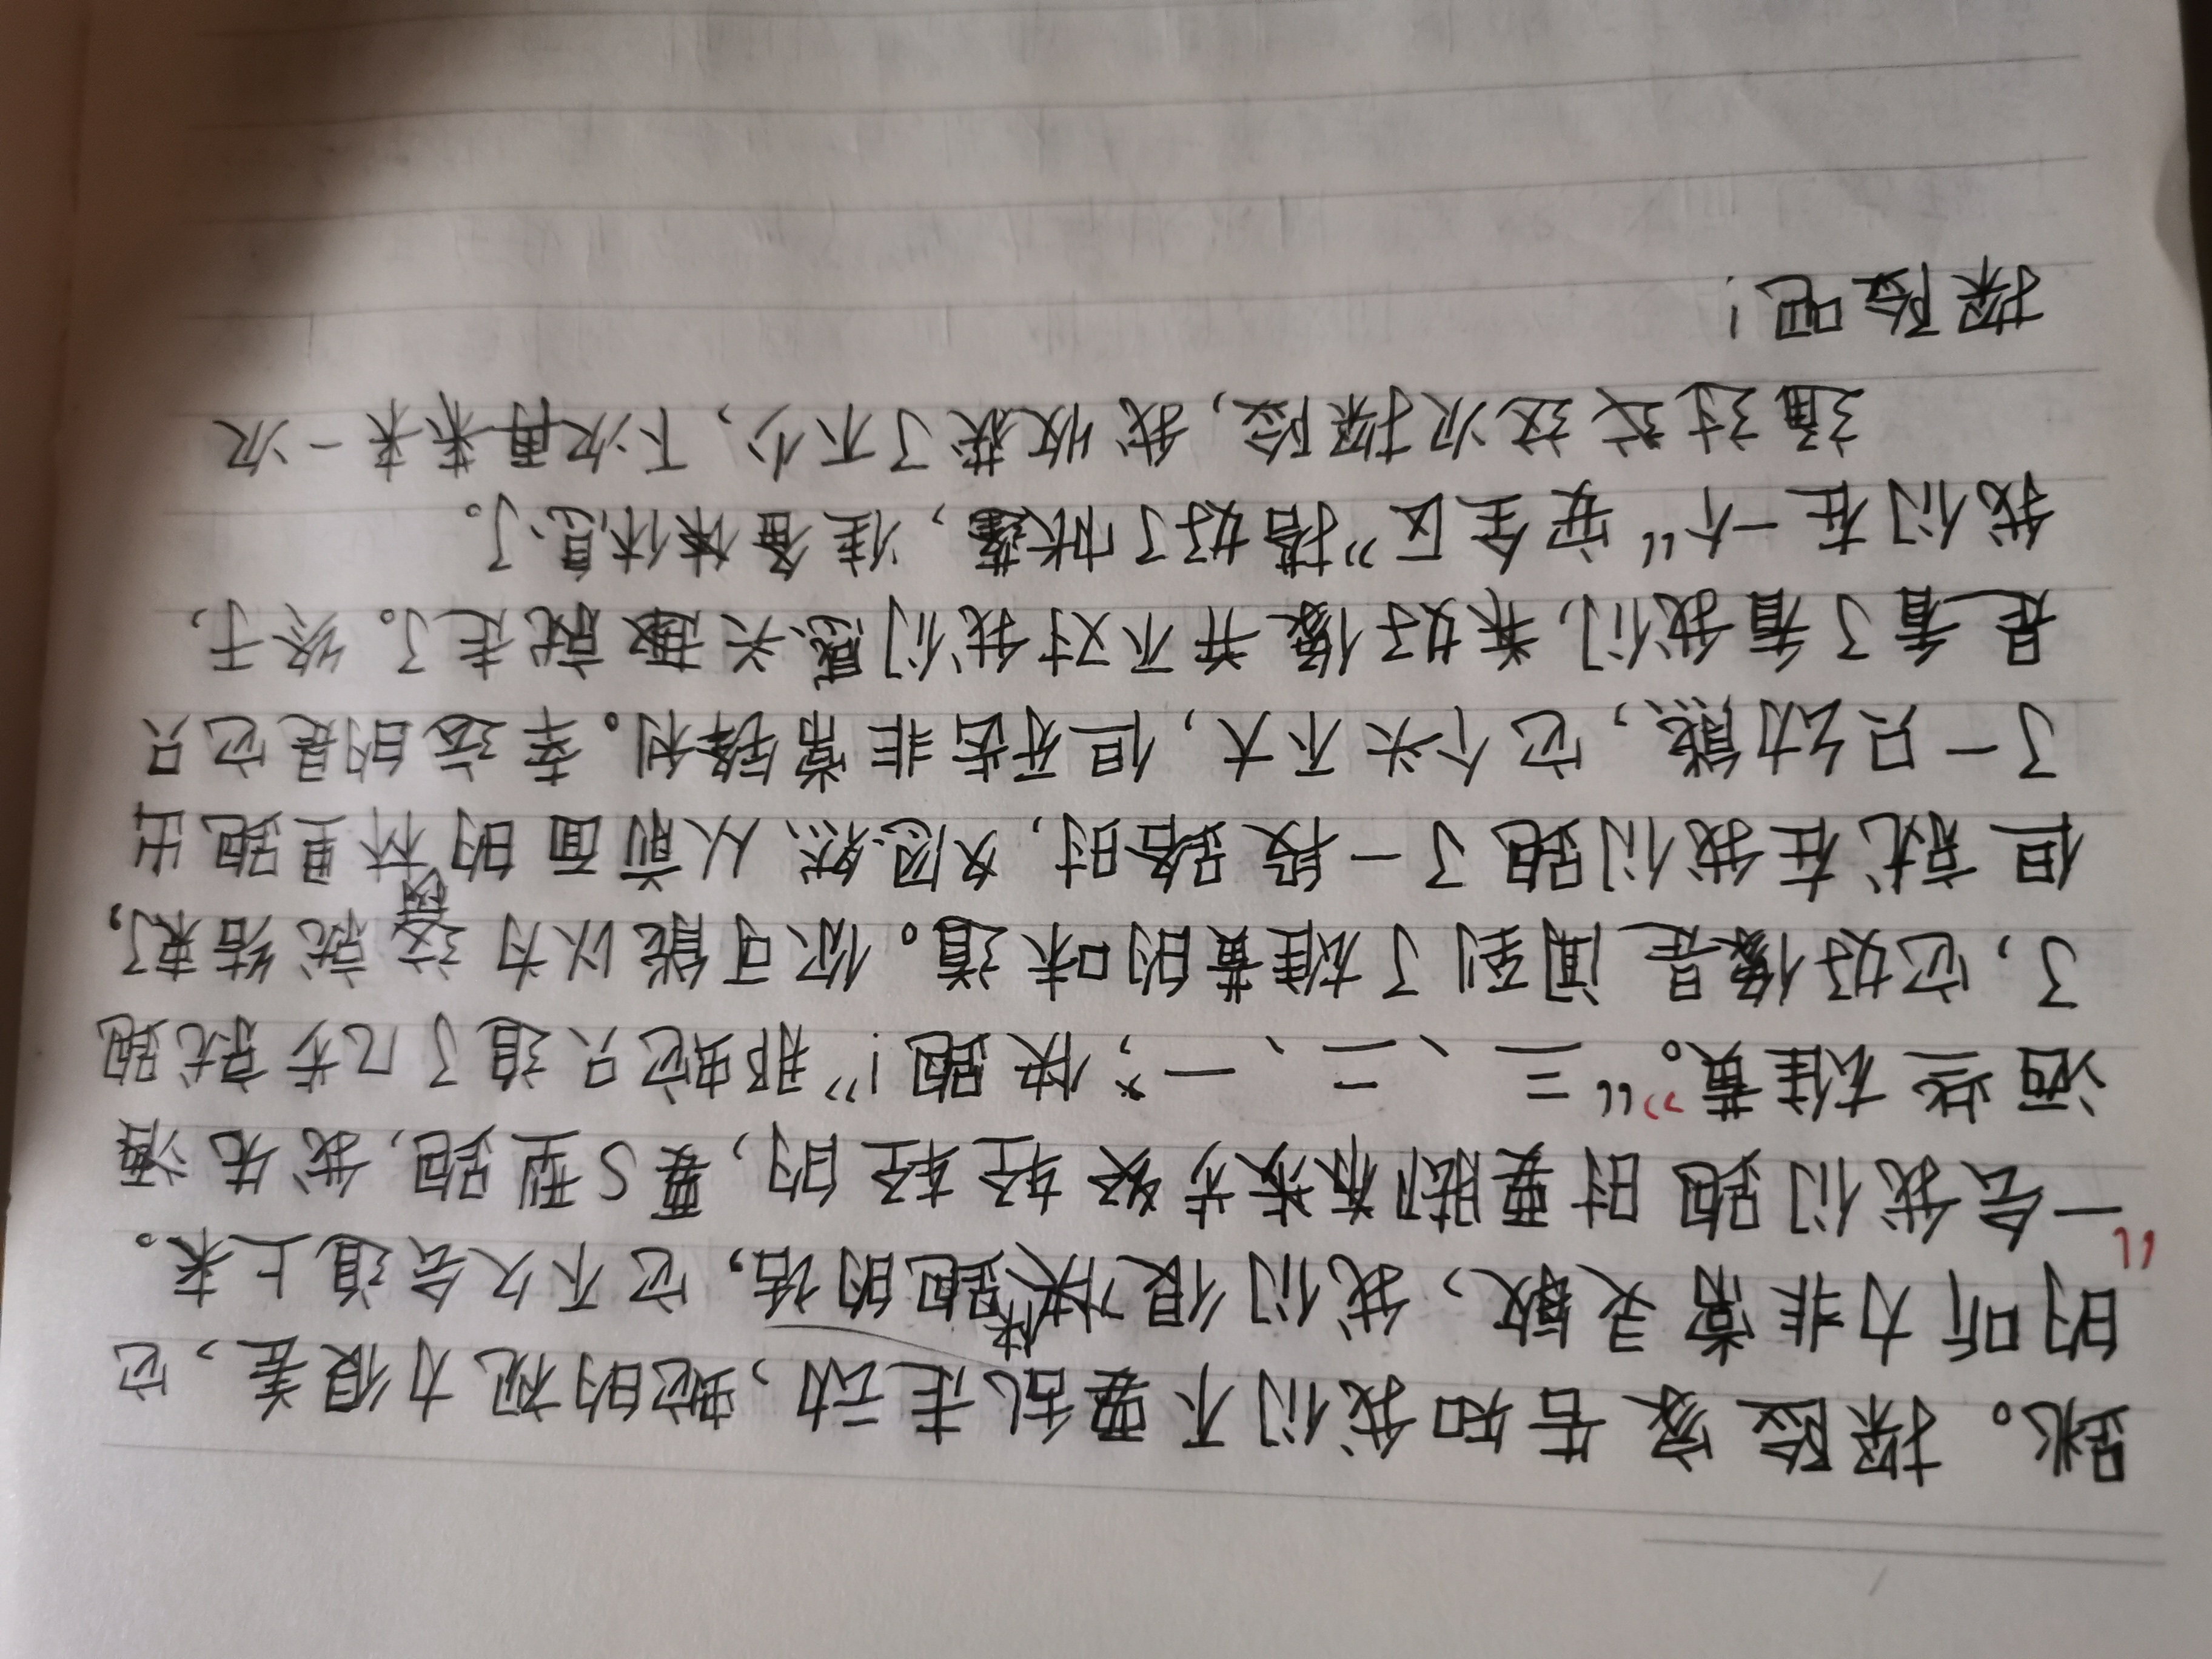 跳。探险家告知我们不要乱走动,蛇的视力很差,它
的听力非常灵敏,我们很快跑的话,它不久会追上来。
“一会我们跑时要脚步轻轻的,要S型跑,我先洒
洒些雄黄。”“三、二、一,快跑!”那蛇只追了几步就跑
了,它好像是闻到了雄黄的味道。你可能以为这就结束了,
但就在我们跑了一段路时,又忽然从前面的林里跑出
了一只幼熊,它个头不大,但牙齿非常锋利。幸运的是它只
是看了看我们,好像并不对我们感兴趣就走了。终于,
我们在一个“安全区”搭好了帐篷,准备休息了。
通过这次探险,我收获了不少,下次再来一次
探险吧!